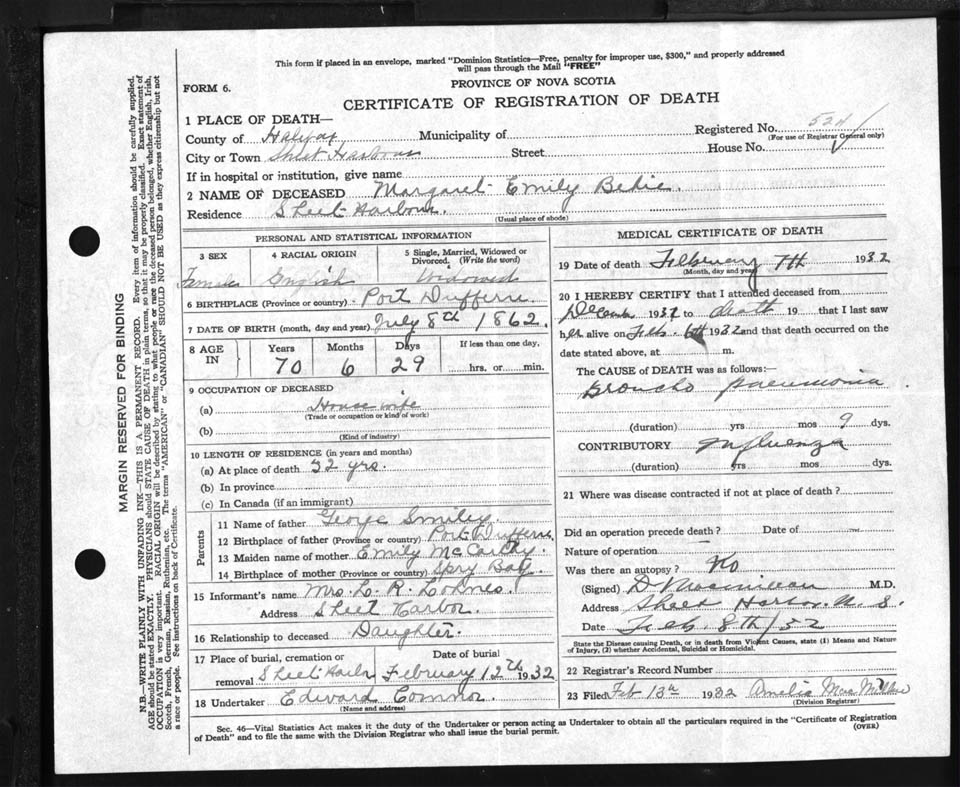 This form if placed in an envelope, marked "Dominion Statistics—Free, penalty for improper use, $300," and properly addressed
will pass through the Mail "FREE"
FORM 6.
PROVINCE OF NOVA SCOTIA
CERTIFICATE OF REGISTRATION OF DEATH
1 PLACE OF DEATH—
Registered No. 524
County of Halifax Municipality of
(For use of Registrar General only)
City or Town Sheet Harbour Street House No.
If in hospital or institution, give name
2 NAME OF DECEASED Margaret Emily Bekie.
Residence Sheet Harbour.
(Usual place of abode)
PERSONAL AND STATISTICAL INFORMATION
3 SEX 4 RACIAL ORIGIN 5 Single, Married, Widowed or Divorced. (Write the word)
Female English Widowed
6 BIRTHPLACE (Province or country) Port Dufferin.
7 DATE OF BIRTH (month, day and year) July 8th 1862.
8 AGE IN Years Months Days If less than one day,
70 6 29 hrs. or min.
9 OCCUPATION OF DECEASED
(a) House wife
(Trade or occupation or kind of work)
(b)
(Kind of industry)
10 LENGTH OF RESIDENCE (in years and months)
(a) At place of death 52 yrs.
(b) In province
(c) In Canada (if an immigrant)
Parents
11 Name of father George Smiley.
12 Birthplace of father (Province or country) Port Dufferin.
13 Maiden name of mother Emily McCarthy.
14 Birthplace of mother (Province or country) Spry Bay.
15 Informant's name Mrs. L. R. Lohnes.
Address Sheet Harbor.
16 Relationship to deceased Daughter.
17 Place of burial, cremation or removal Date of burial
Sheet Harbr February 12th 1932
18 Undertaker Edward Connor.
(Name and address)
MEDICAL CERTIFICATE OF DEATH
19 Date of death February 7th 1932
(Month, day and year)
20 I HEREBY CERTIFY that I attended deceased from
December 1931 to death 19 that I last saw
her alive on Feb. 6th 1932 and that death occurred on the
date stated above, at m.
The CAUSE OF DEATH was as follows:—
Broncho pneumonia
(duration) yrs mos 9 dys.
CONTRIBUTORY Influenza
(duration) yrs mos dys.
21 Where was disease contracted if not at place of death?
Did an operation precede death? Date of
Nature of operation
Was there an autopsy? No
(Signed) M.D.
Address Sheet Harbor. N. S.
Date Feb. 8th/32
State the Disease causing Death, or in death from Violent Causes, state (1) Means and Nature
of Injury, (2) whether Accidental, Suicidal or Homicidal.
22 Registrar's Record Number
23 Filed Feb 13th 1932 Amelia
(Division Registrar)
Sec. 46—Vital Statistics Act makes it the duty of the Undertaker or person acting as Undertaker to obtain all the particulars required in the "Certificate of Registration
of Death" and to file the same with the Division Registrar who shall issue the burial permit.
(OVER)
MARGIN RESERVED FOR BINDING
N.B.—WRITE PLAINLY WITH UNFADING INK—THIS IS A PERMANENT RECORD. Every item of information should be carefully supplied.
AGE should be stated EXACTLY. PHYSICIANS should STATE CAUSE OF DEATH in plain terms, so that it may be properly classified. Exact statement of
OCCUPATION is very important. RACIAL ORIGIN will be described by stating to what people or race the deceased person belonged, whether English, Irish,
Scotch, French, German, Russian, Ruthenian, etc. The terms "AMERICAN" or "CANADIAN" SHOULD NOT BE USED as they express citizenship but not
a race or people. See instructions on back of Certificate.